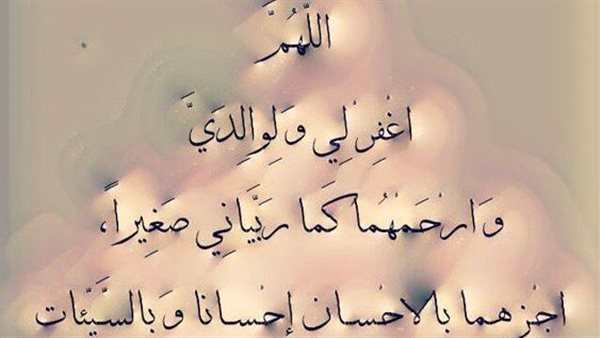 اللَّهُمَّ
اغْفِرْ لِي وَلِوَالِدَيَّ
وَارْحَمْهُمَا كَمَا رَبَّيَانِي صَغِيراً،
اجْزهما بالاحْسان إحْسانا وَبالسَّيِّئات